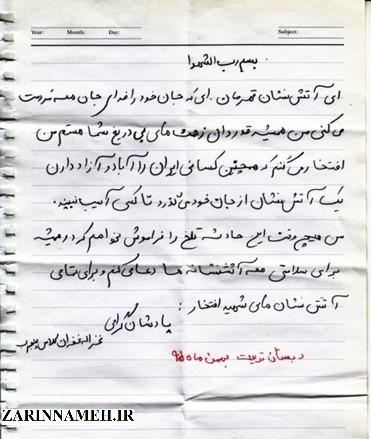 Year: Month: Day: Subject:
بسم رب الشهدا
ای آتش نشان قهرمان ای که جان خود را فدای جان همه مردم
می کنی من همیشه قدردان زحمت های بی دریغ شما هستم من
افتخار می کنم که همچین کسانی ایران را آباد و آزاد دارن
یک آتش نشان از جان خود می گذرد تا کسی آسیب نبیند.
من هیچ وقت این حادثه تلخ را فراموش نخواهم کرد و همیشه
برای سلامتی همه آتشنشانه ها دعا می کنم و برای تمامی
آتش نشان های شهید افتخار :
یادشان گرامی
کلاس پنجم
دبستان تربیت بهمن ماه ۹۵
ZARINNAMEH.IR